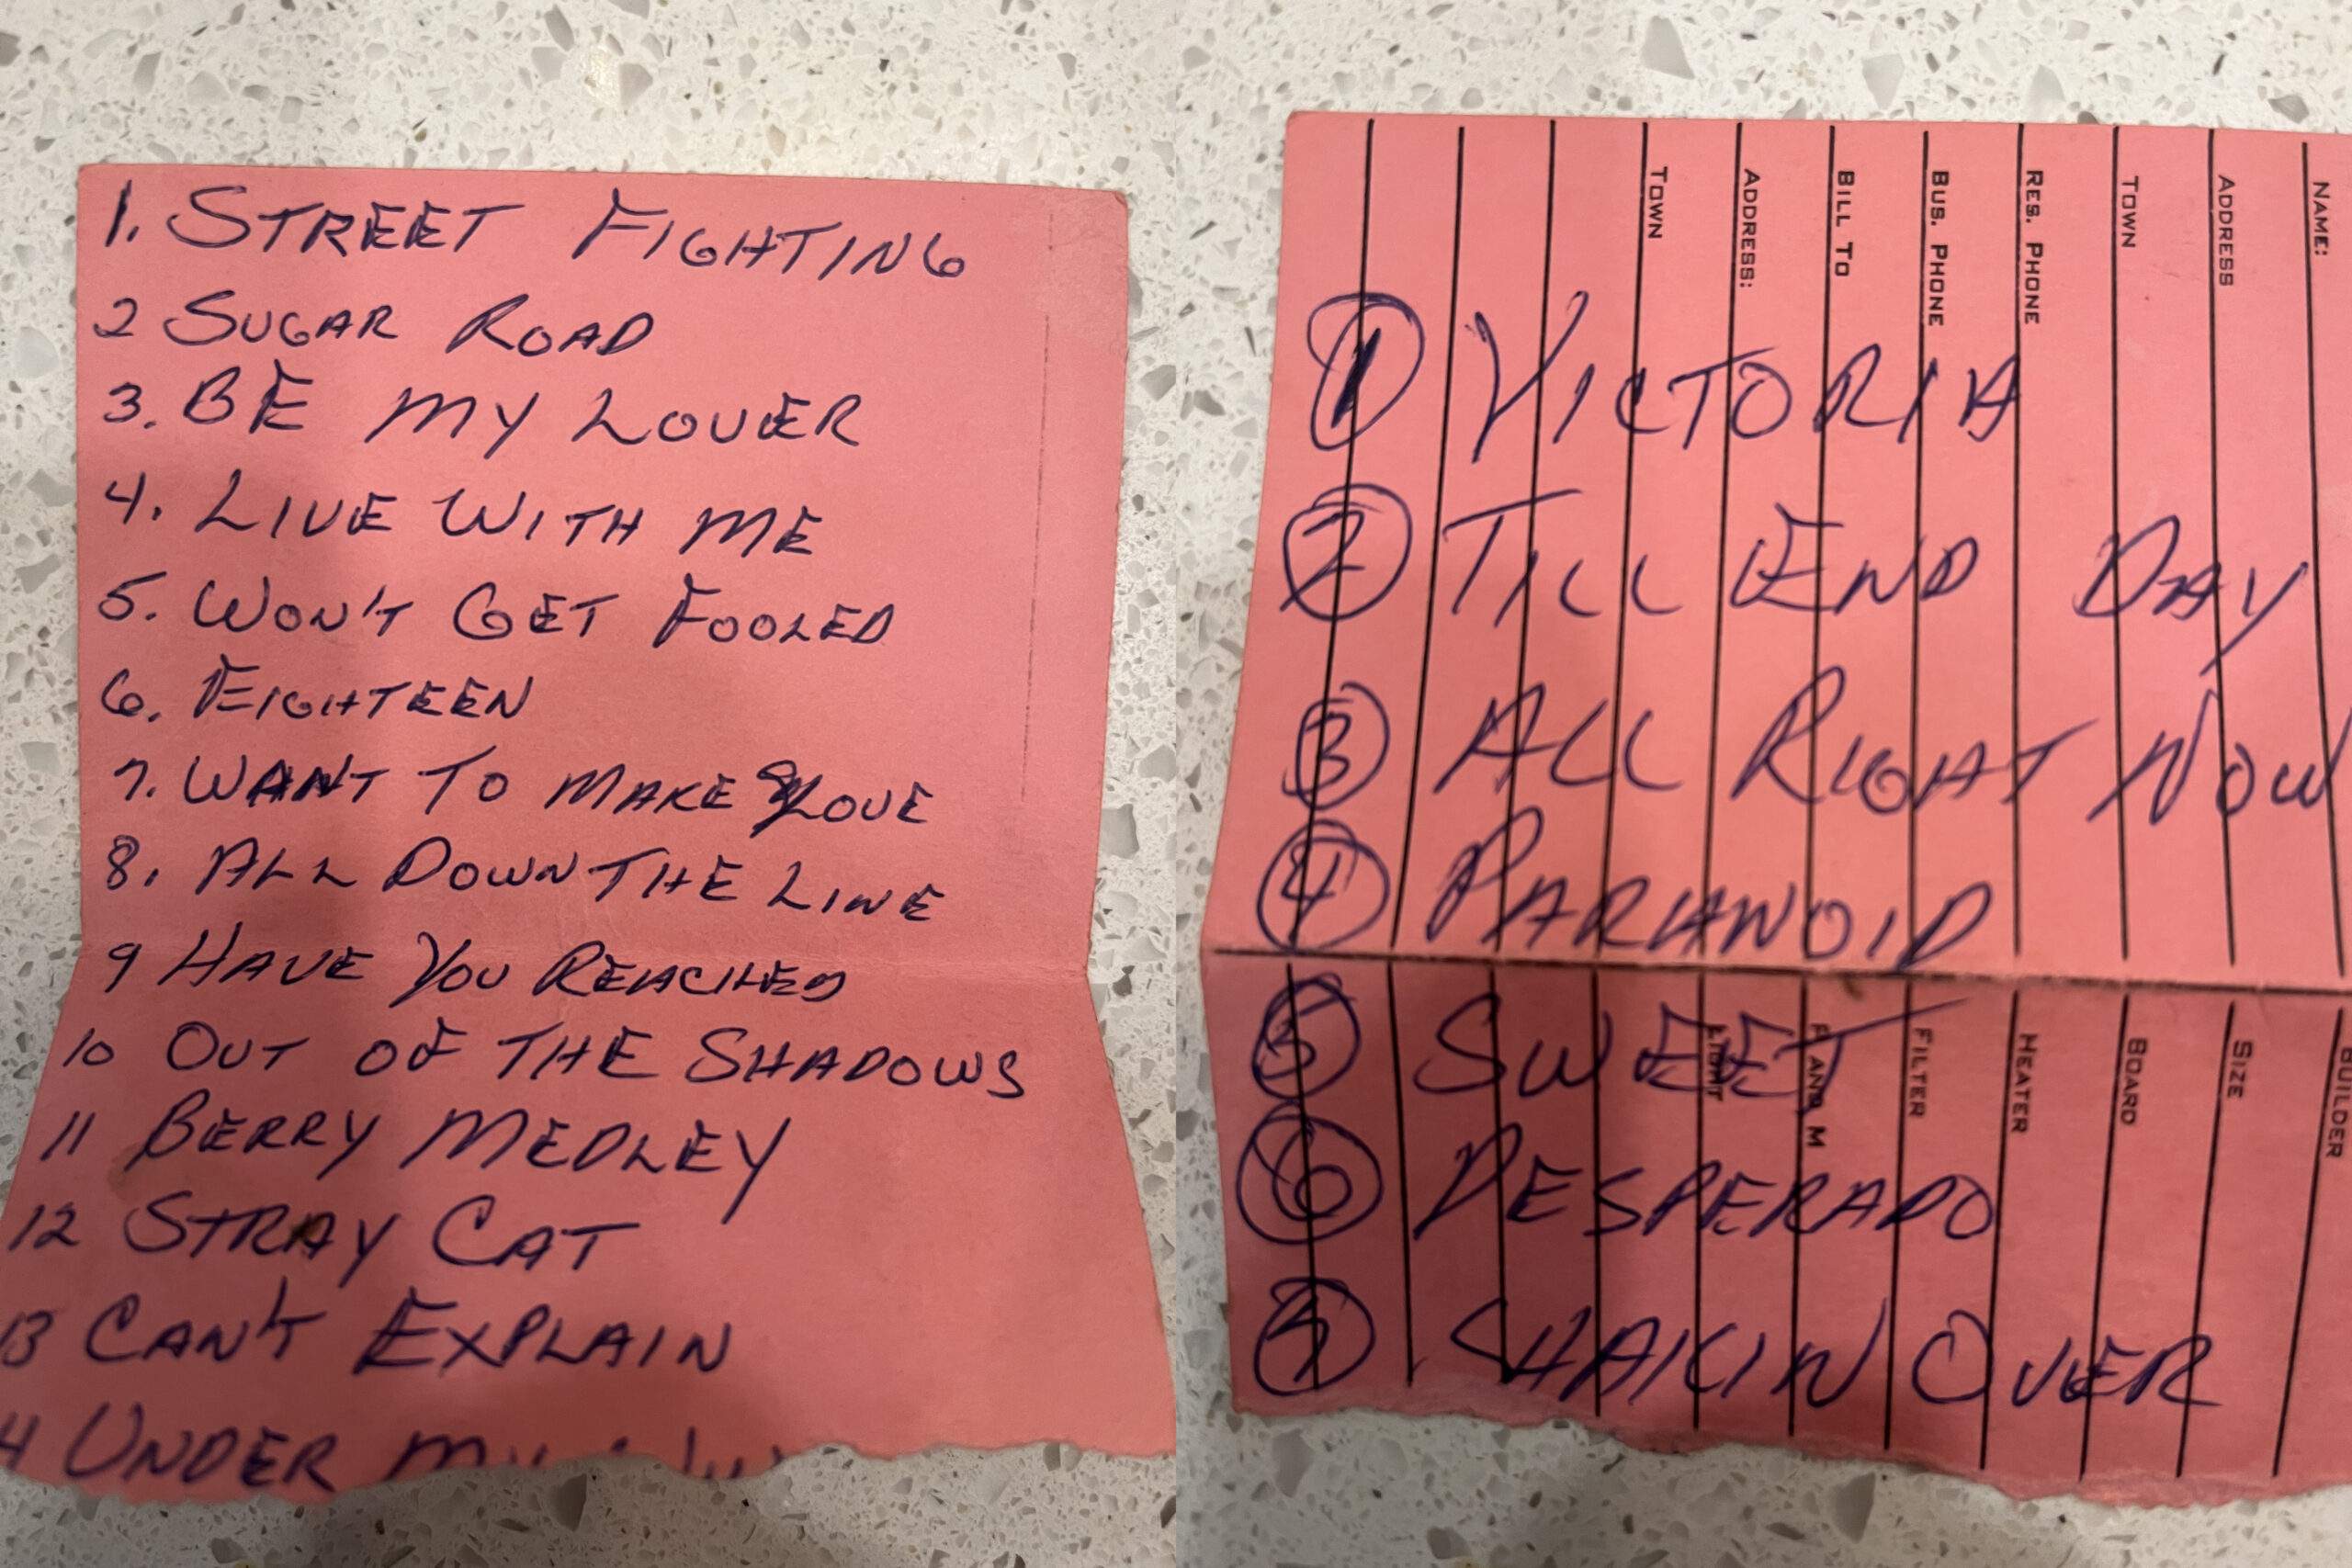 1. STREET FIGHTING
2 SUGAR ROAD
3. BE MY LOVER
4. LIVE WITH ME
5. WON'T GET FOOLED
6. EIGHTEEN
7. WANT TO MAKE LOVE
8. ALL DOWN THE LINE
9 HAVE YOU REACHED
10 OUT OF THE SHADOWS
11 BERRY MEDLEY
12 STRAY CAT
13 CAN'T EXPLAIN
4 UNDER MY
NAME:
ADDRESS
TOWN
RES. PHONE
BUS. PHONE
BILL TO
ADDRESS:
TOWN
1 VICTORIA
2 TILL END DAY
3 ALL RIGHT NOW
4 PARANOID
5 SWEET
6 DESPERADO
7 SHAKIN OVER
BUILDER
SIZE
BOARD
HEATER
FILTER
F AND M
LIGHT